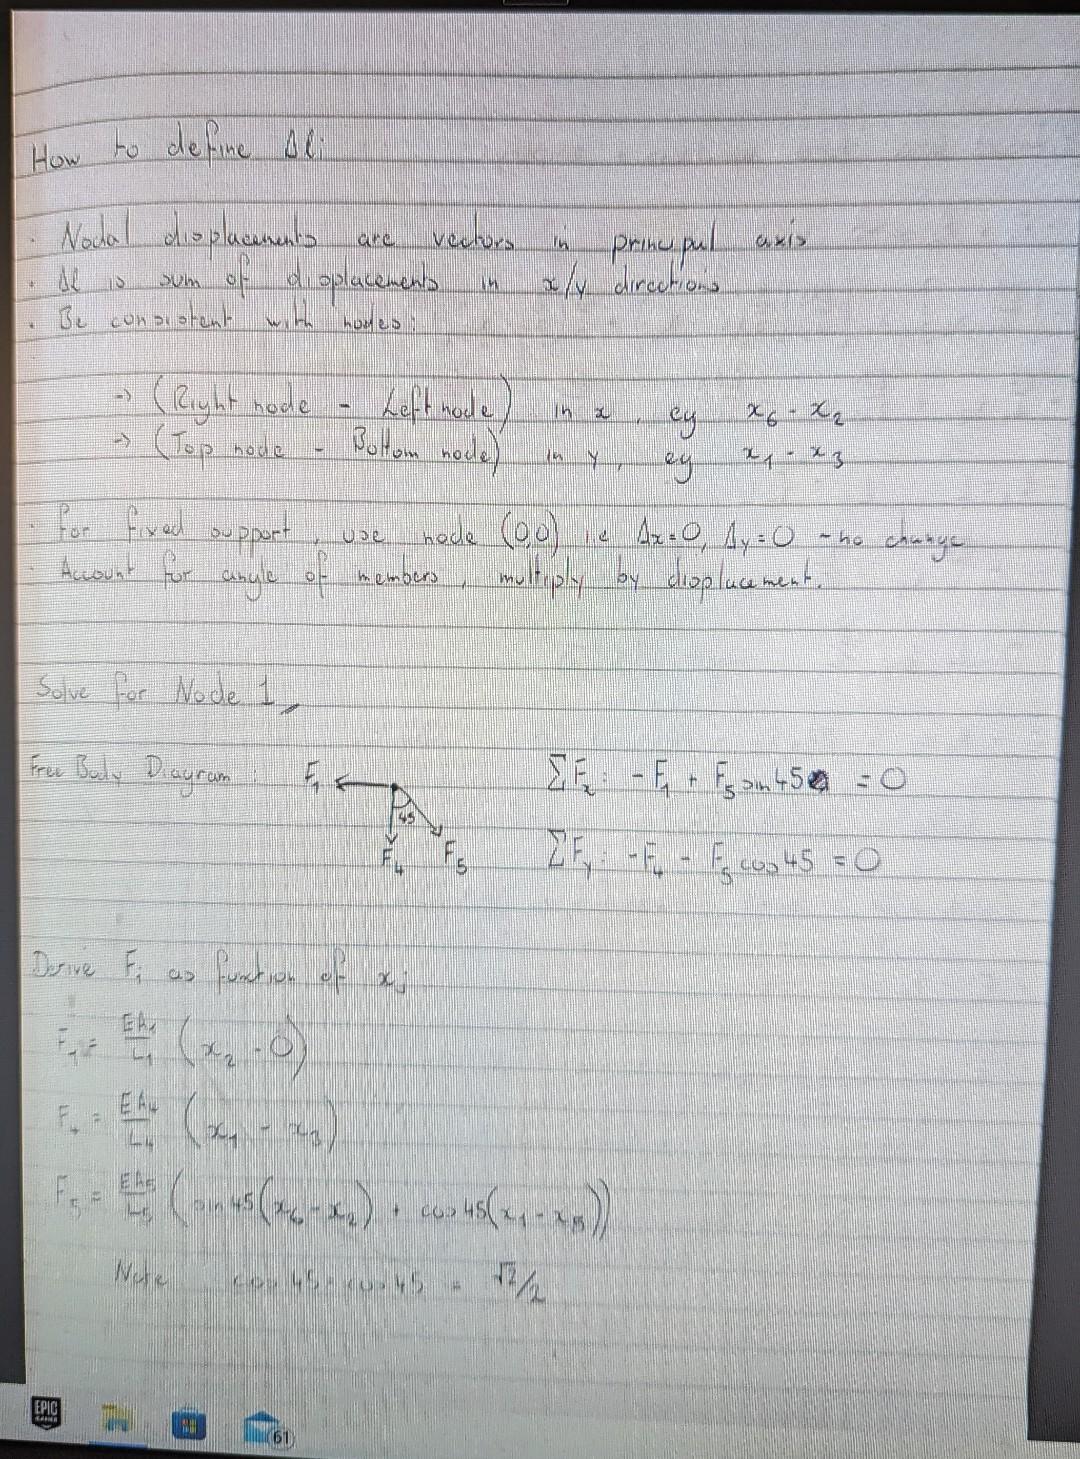 How to define Δli
· Nodal displacements are vectors in principal axis
· Δl is sum of displacements in x/y directions
· Be consistent with nodes:
→ (Right node - Left node) in x, eg x₆ - x₂
→ (Top node - Bottom node) in y, eg x₁ - x₃
· For fixed support, use node (0,0) ie Δx=0, Δy=0 - no change
· Account for angle of members, multiply by displacement.
Solve for Node 1,
Free Body Diagram: F₁ 45 F₄ F₅
ΣFₓ: -F₁ + F₅ sin 45 = 0
ΣFy: -F₄ - F₅ cos 45 = 0
Derive Fi as function of xj
F₁ = EA₁/L₁ (x₂ - 0)
F₄ = EA₄/L₄ (x₁ - x₃)
F₅ = EA₅/L₅ (sin 45(x₆ - x₂) + cos 45(x₁ - x₅))
Note cos 45 = √2/2
EPIC
GAMES
61